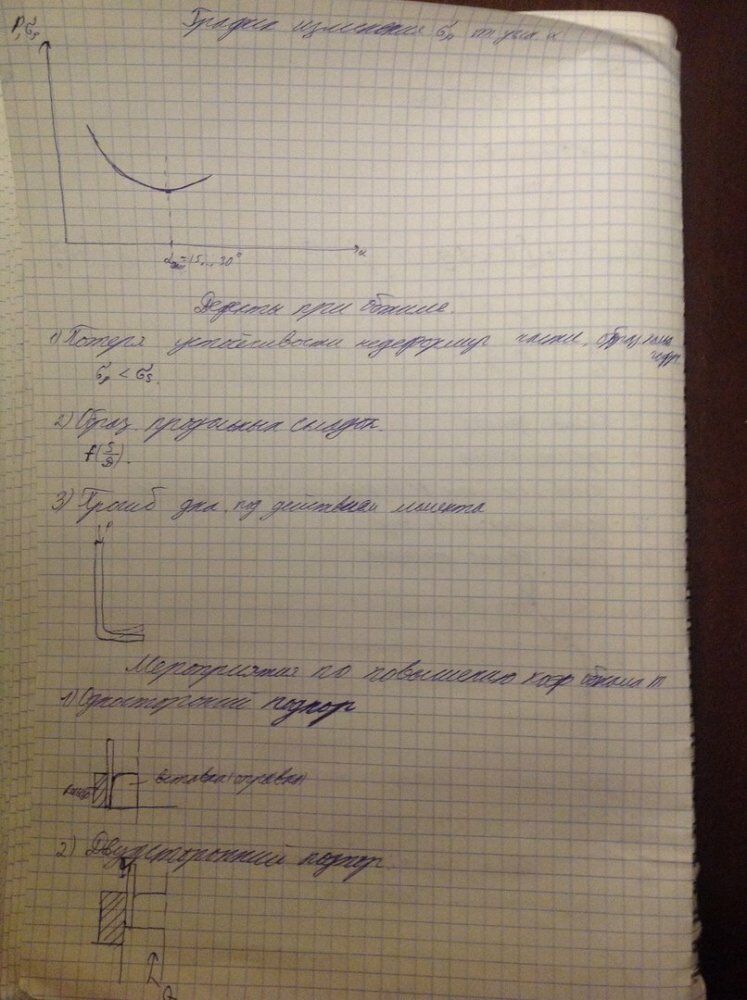 P, σs
График изменения σρ от угла α
α
=15...30°
Дефекты при обжиме.
1) Потеря устойчивости недеформир части, образ
σρ < σs.
2) Образ. продольных складок.
f(S/D).
3) Прогиб дна, под действием момента
P
Мероприятия по повышению коэф обжима m
1) Односторонний подпор
вставка (оправка)
2) Двухсторонний подпор.
Q